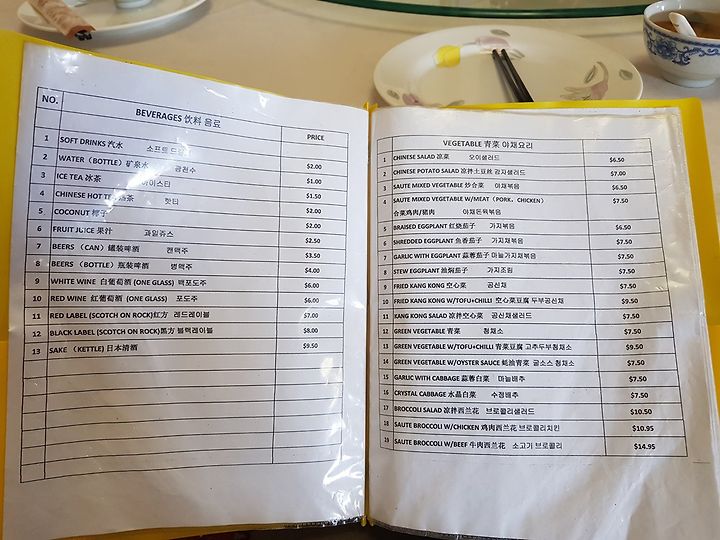 NO. BEVERAGES 饮料 음료 PRICE
1 SOFT DRINKS 汽水 소프트 $2.00
2 WATER (BOTTLE) 矿泉水 광천수 $1.00
3 ICE TEA 冰茶 아이스타 $1.50
4 CHINESE HOT 热茶 핫타 $2.00
5 COCONUT 椰子 $2.00
6 FRUIT JUICE 果汁 과일쥬스 $2.50
7 BEERS (CAN) 罐装啤酒 캔맥주 $3.50
8 BEERS (BOTTLE) 瓶装啤酒 병맥주 $4.00
9 WHITE WINE 白葡萄酒 (ONE GLASS) 백포도주 $6.00
10 RED WINE 红葡萄酒 (ONE GLASS) 포도주 $6.00
11 RED LABEL (SCOTCH ON ROCK)红方 레드레이블 $7.00
12 BLACK LABEL (SCOTCH ON ROCK)黑方 블랙레이블 $8.00
13 SAKE (KETTLE) 日本清酒 $9.50
VEGETABLE 青菜 야채요리
1 CHINESE SALAD 凉菜 오이샐러드 $6.50
2 CHINESE POTATO SALAD 凉拌土豆丝 감자샐러드 $7.00
3 SAUTE MIXED VEGETABLE 炒合菜 야채볶음 $6.50
4 SAUTE MIXED VEGETABLE W/MEAT (PORK, CHICKEN) $7.50
合菜鸡肉/猪肉 야채돈육볶음
5 BRAISED EGGPLANT 红烧茄子 가지볶음 $6.50
6 SHREDDED EGGPLANT 鱼香茄子 가지채볶음 $7.50
7 GARLIC WITH EGGPLANT 蒜蓉茄子 마늘가지채볶음 $7.50
8 STEW EGGPLANT 油焖茄子 가지조림 $7.50
9 FRIED KANG KONG 空心菜 공신채 $7.50
10 FRIED KANG KONG W/TOFU+CHILLI 空心菜豆腐 두부공신채 $9.50
11 KANG KONG SALAD 凉拌空心菜 공신채샐러드 $7.50
12 GREEN VEGETABLE 青菜 청채소 $7.50
13 GREEN VEGETABLE W/TOFU+CHILLI 青菜豆腐 고추두부청채소 $9.50
14 GREEN VEGETABLE W/OYSTER SAUCE 蚝油青菜 굴소스 청채소 $7.50
15 GARLIC WITH CABBAGE 蒜蓉白菜 마늘배추 $7.50
16 CRYSTAL CABBAGE 水晶白菜 수정배추 $7.50
17 BROCCOLI SALAD 凉拌西兰花 브로콜리샐러드 $10.50
18 SAUTE BROCCOLI W/CHICKEN 鸡肉西兰花 브로콜리치킨 $10.95
19 SAUTE BROCCOLI W/BEEF 牛肉西兰花 소고기 브로콜리 $14.95